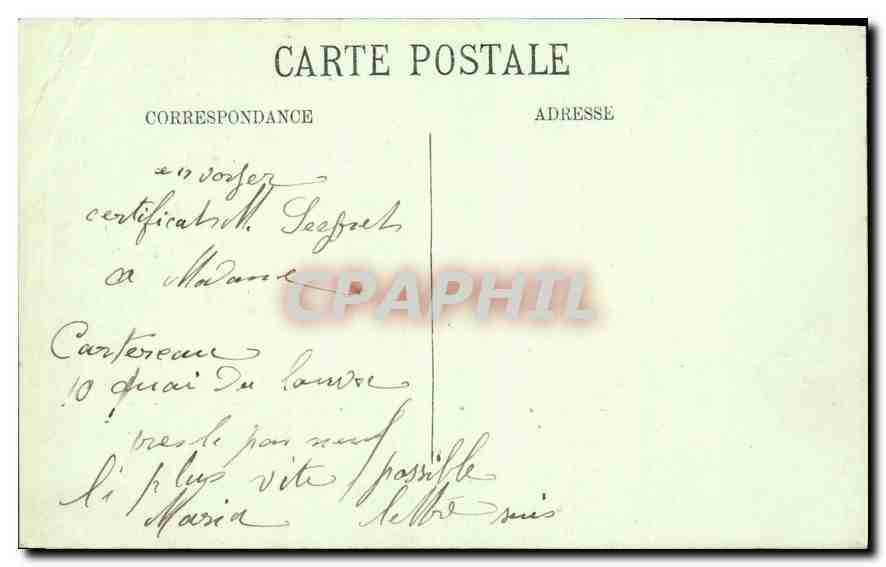 CARTE POSTALE
CORRESPONDANCE
ADRESSE
envoyer
certificat M.
a Madame
CPAPHIL
Cartereau
10 quai du louvre
le plus vite possible
Maria lettre suis